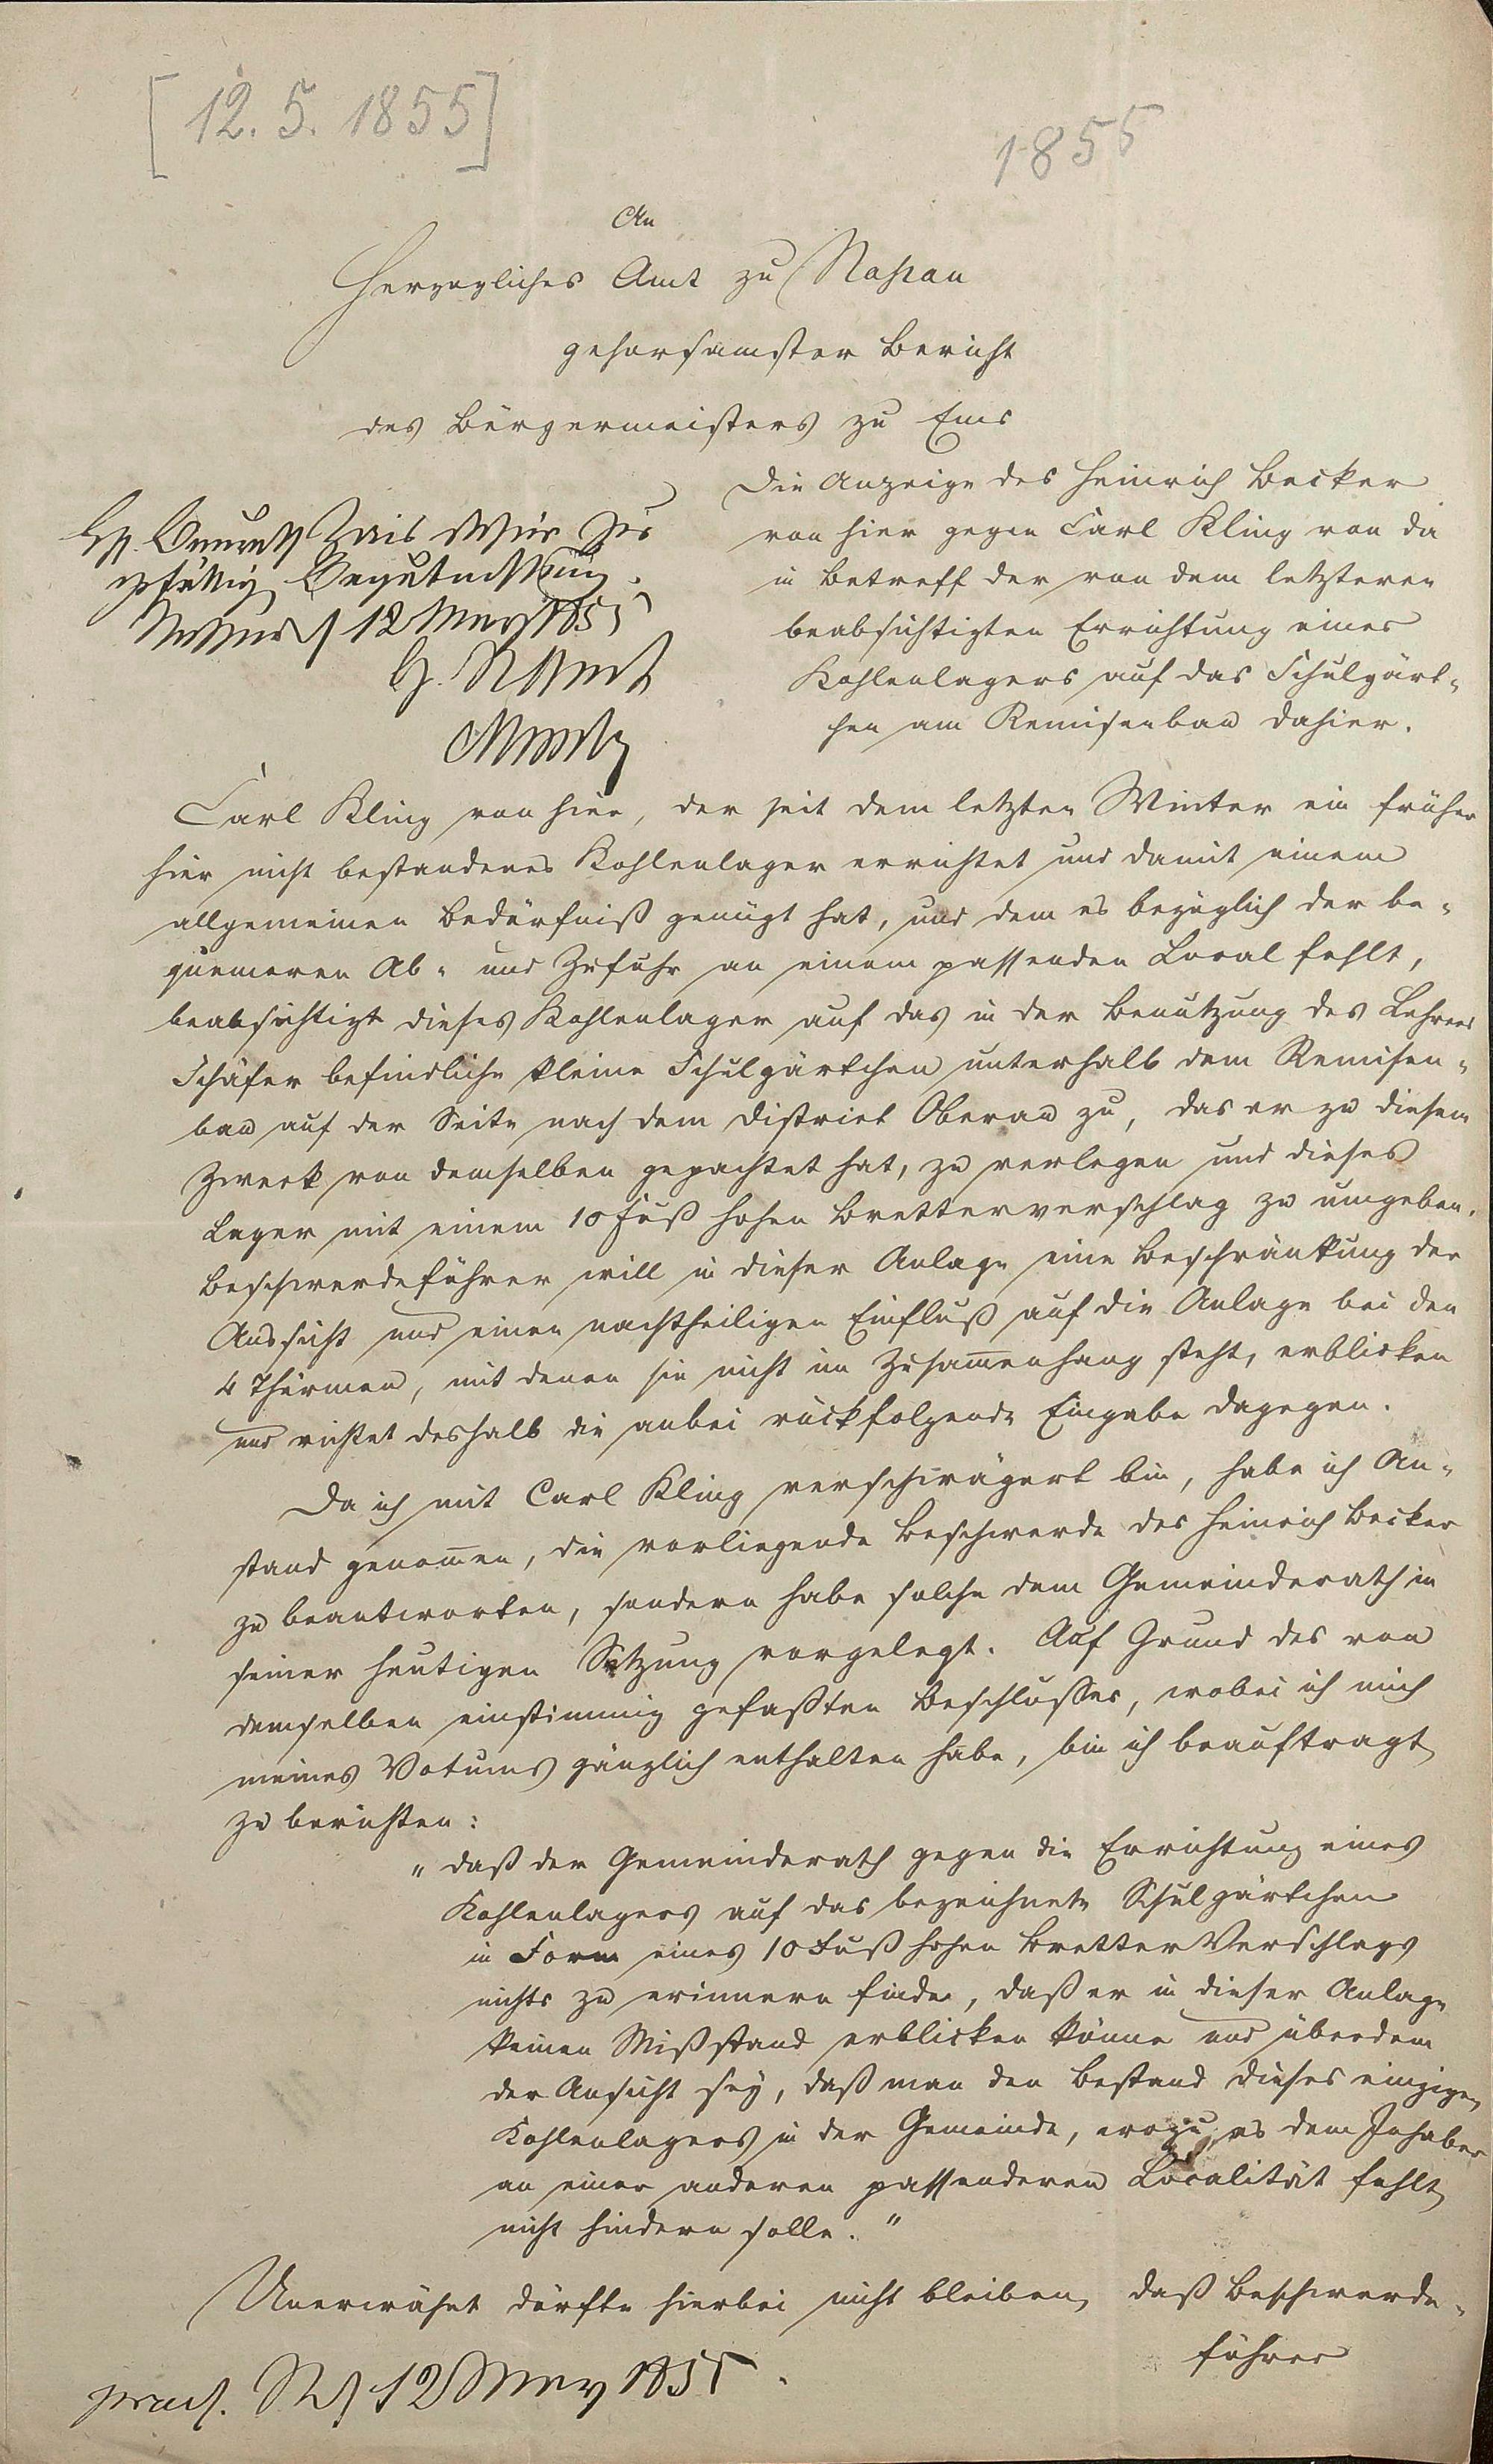 [12. 5. 1855]
1855
An
Herzogliches Amt zu Nassau
gehorsamster Bericht
des Bürgermeisters zu Ems
Die Anzeige des Heinrich Becker
von hier gegen Carl Kling von da
in Betreff der von dem letzteren
beabsichtigten Errichtung eines
Kohlenlagers auf das Schulgärt-
chen am Remisenbau dahier.
Begutachtung.
Nassau d 12 May 1855
H. N. Amt
Carl Kling von hier, der seit dem letzten Winter ein früher
hier nicht bestandenes Kohlenlager errichtet und damit einem
allgemeinen Bedürfniß genügt hat, und dem es bezüglich der be-
quemeren Ab- und Zufuhr an einem passenden Local fehlt,
beabsichtigt dieses Kohlenlager auf das in der Benutzung des Lehrers
Schäfer befindliche kleine Schulgärtchen unterhalb dem Remisen-
bau auf der Seite nach dem District Oberau zu, das er zu diesem
Zweck von demselben gepachtet hat, zu verlegen und dieses
Lager mit einem 10 Fuß hohen Bretterverschlag zu umgeben.
Beschwerdeführer will in dieser Anlage eine Beschränkung der
Aussicht und einen nachtheiligen Einfluß auf die Anlage bei den
4 Thürmen, mit denen sie nicht im Zusammenhang steht, erblicken
und richtet deshalb die anbei rückfolgende Eingabe dagegen.
Da ich mit Carl Kling verschwägert bin, habe ich An-
stand genommen, die vorliegende Beschwerde des Heinrich Becker
zu beantworten, sondern habe solche dem Gemeinderath in
seiner heutigen Sitzung vorgelegt. Auf Grund des von
demselben einstimmig gefaßten Beschlusses, wobei ich mich
meines Votums gänzlich enthalten habe, bin ich beauftragt
zu berichten:
"daß der Gemeinderath gegen die Errichtung eines
Kohlenlagers auf das bezeichnete Schulgärtchen
in Form eines 10 Fuß hohen Bretter Verschlags
nichts zu erinnern finde, daß er in dieser Anlage
keinen Mißstand erblicken könne und überdem
der Ansicht sey, daß man den Bestand dieses einzigen
Kohlenlagers in der Gemeinde, wozu es dem Inhaber
an einer anderen passenderen Localität fehlt,
nicht hindern solle."
Unerwähnt dürfte hierbei nicht bleiben, daß Beschwerde-
führer
praes. N. d 12 May 1855.